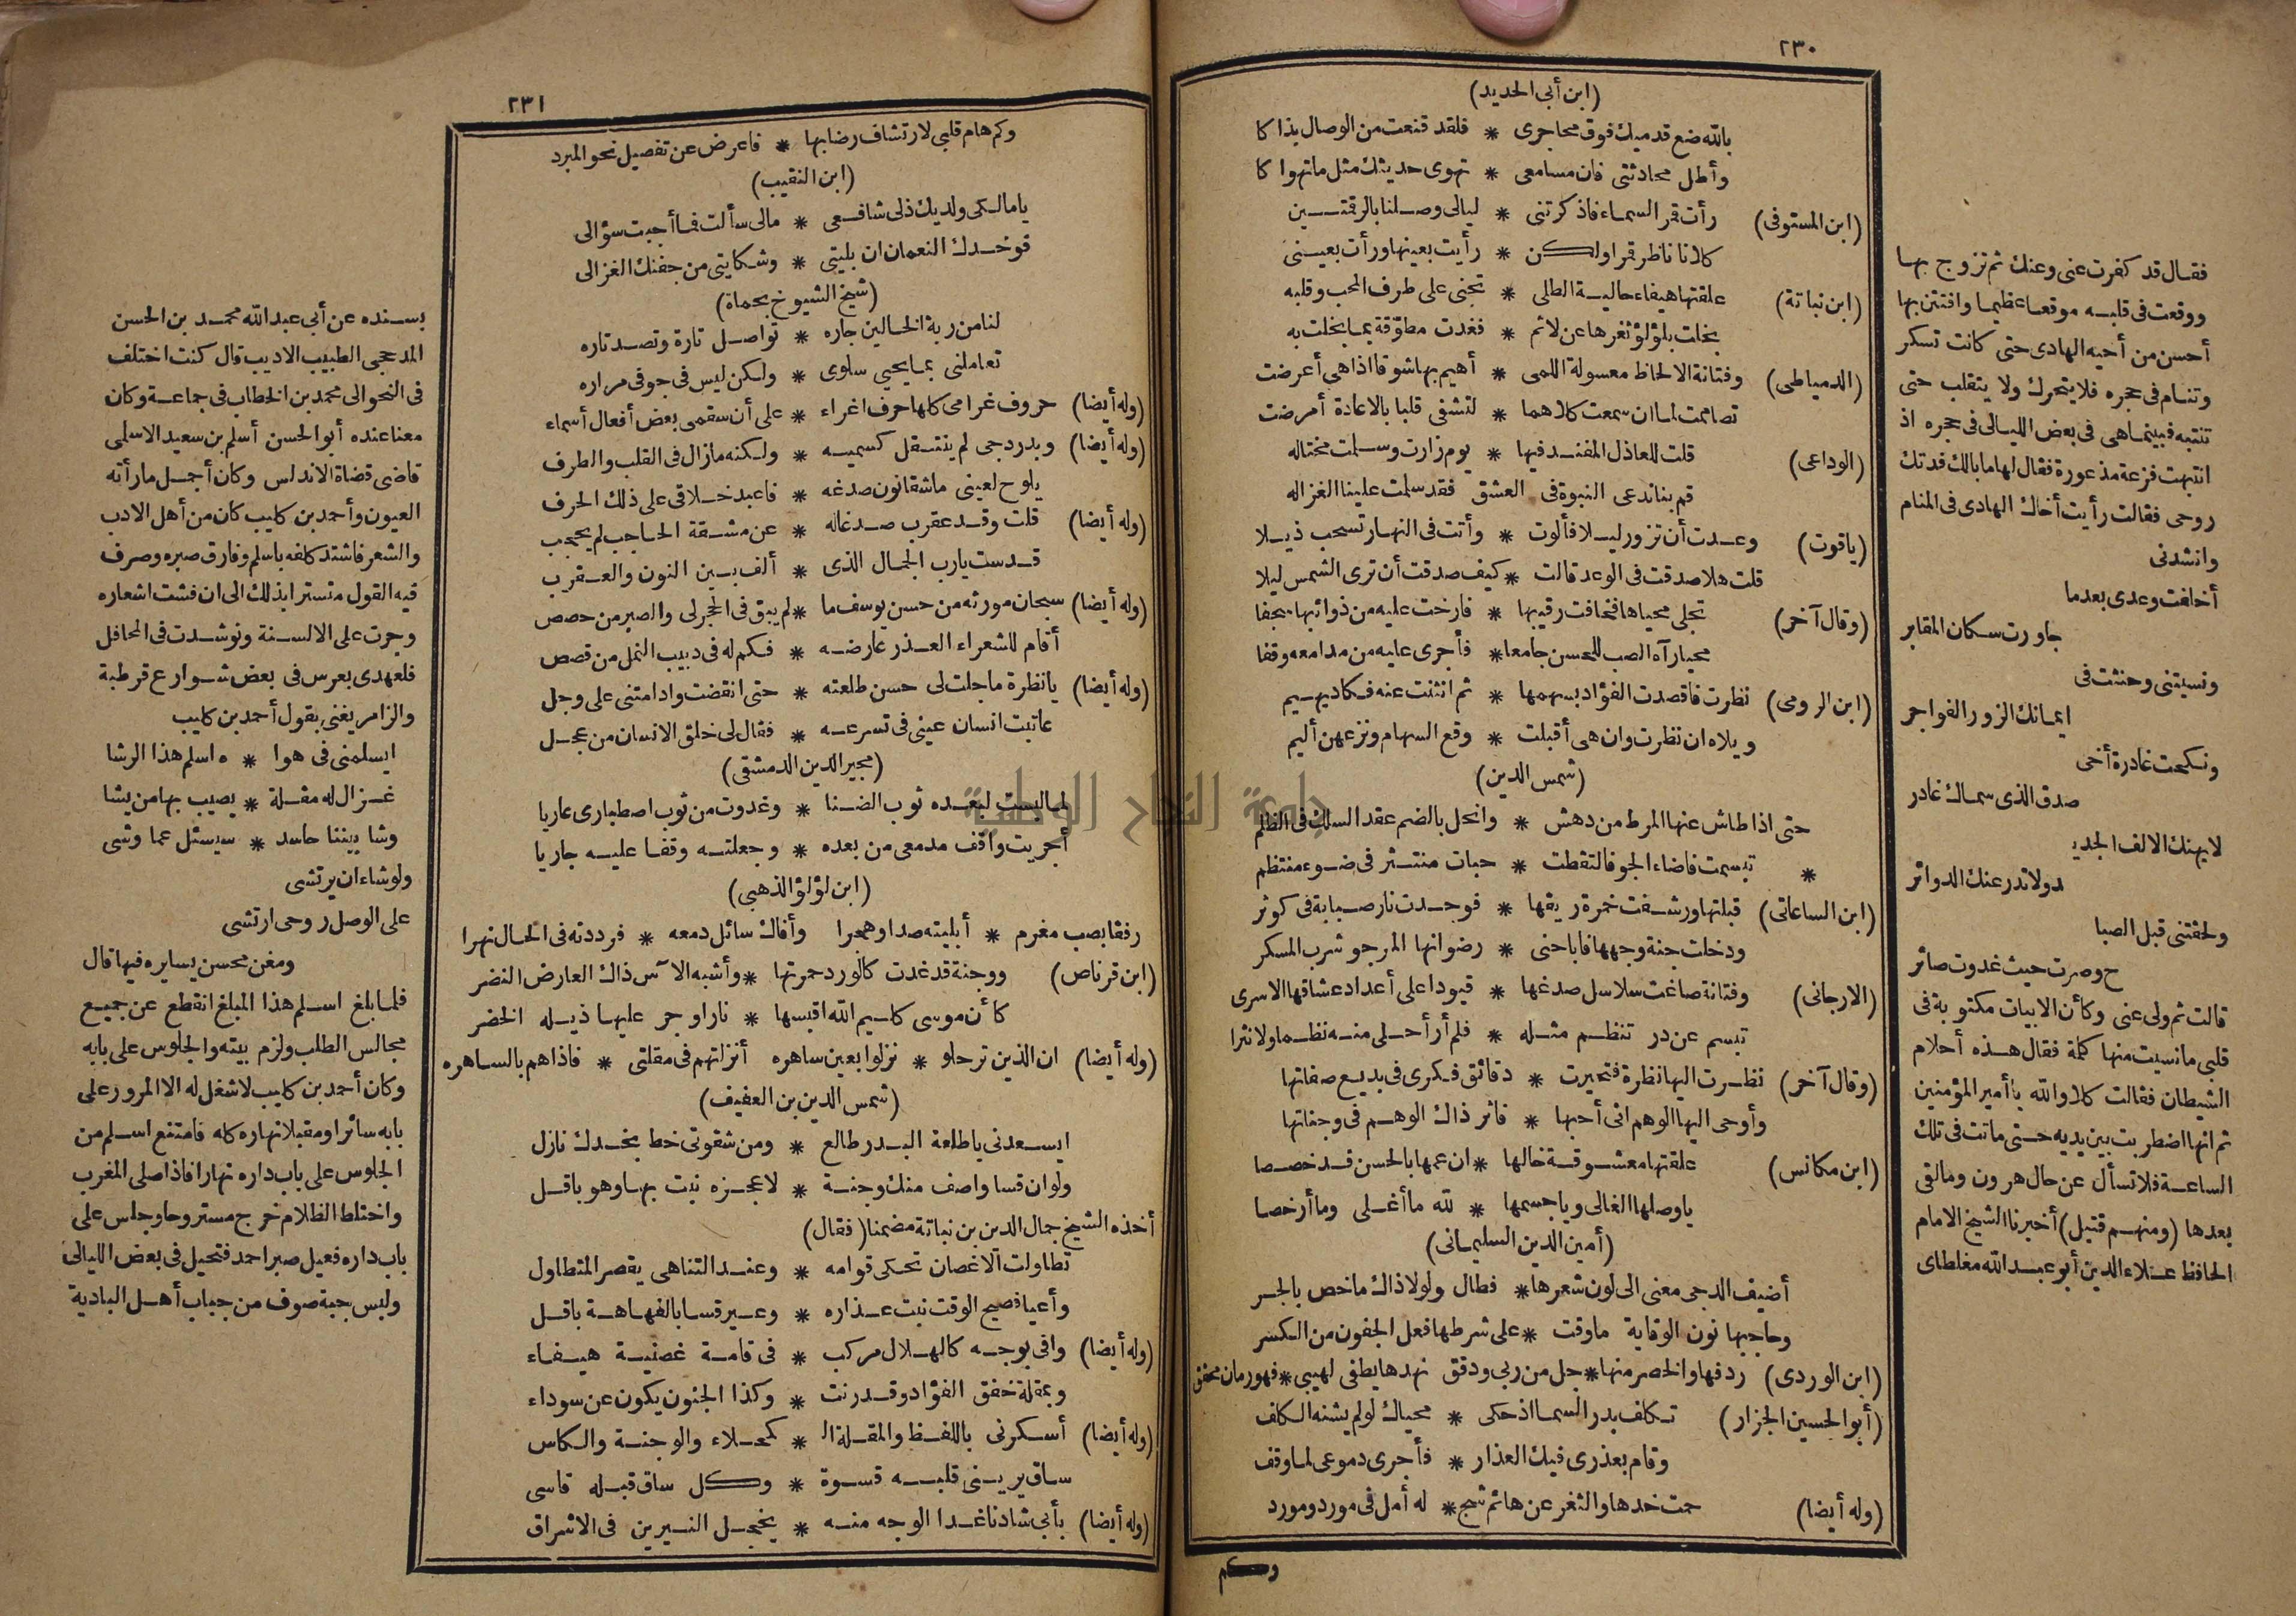 ٢٣٠
(ابن أبى الحديد)
بالله ضع قدميك فوق محاجرى * فلقد قنعت من الوصال بذاكا
وأطل محادثتى فان مسامعى * تهوى حديثك مثل ما تهواكا
(ابن المستوفى) رأت قمر السماء فاذكرتنى * ليالى وصلنا بالرقمتين
كلانا ناظر قمرا ولكن * رأيت بعينها ورأت بعينى
(ابن نباتة) علقتها هيفاء حالية الطلى * تجنى على طرف المحب وقلبه
بخلت بلؤلؤ ثغرها عن لاثم * فغدت مطوّقة بما بخلت به
(الدمياطى) وفتانة الالحاظ معسولة اللمى * أهيم بها شوقا اذا هى أعرضت
تصاممت لما ان سمعت كلامها * لتشفى قلبا بالاعادة أمرضت
(الوداعى) قلت للعاذل المفند فيها * يوم زارت وسلمت مختاله
قم بنا ندعى النبوة فى العشق فقد سلمت علينا الغزاله
(ياقوت) وعدت أن تزور ليلا فألوت * وأتت فى النهار تسحب ذيلا
قلت هلا صدقت فى الوعد قالت * كيف صدقت أن ترى الشمس ليلا
(وقال آخر) تجلى محياها فخافت رقيبها * فارخت عليه من ذوائبها سجفا
محيا رآه الصب للحسن جامعا * فأجرى عليه من مدامعه وقفا
(ابن الرومى) نظرت فاقصدت الفؤاد بسهمها * ثم انثنت عنه فكاد يهيم
ويلاه ان نظرت وان هى أقبلت * وقع السهام ونزعهن أليم
(شمس الدين)
حتى اذا طاش عنها المرط من دهش * وانحل بالضم عقد السلك فى الظلم
* تبسمت فاضاء الجو فالتقطت * حبات منتثر فى ضوء منتظم
(ابن الساعاتى) قبلتها ورشفت خمرة ريقها * فوجدت نار صبابة فى كوثر
ودخلت جنة وجهها فاباحنى * رضوانها المرجو شرب المسكر
(الارجانى) وفتانة صاغت سلاسل صدغها * قيودا على أعداد عشاقها الاسرى
تبسم عن در تنظم مثله * فلم أر أحلى منه نظما ولا نثرا
(وقال آخر) نظرت اليها نظرة فتحيرت * دقائق فكرى فى بديع صفاتها
وأوحى اليها الوهم انى أحبها * فاثر ذاك الوهم فى وجناتها
(ابن مكانس) علقتها معشوقة خالها * ان عمها بالحسن قد خصصا
ياوصلها الغالى وياجسمها * لله ما أغلى وما أرخصا
(أمين الدين السليمانى)
أضيف الدجى معنى الى لون شعرها * فطال ولولا ذاك ماخص بالجر
وحاجبها نون الوقاية ماوقت * على شرطها فعل الجفون من الكسر
(ابن الوردى) ردفها والخصر منها * جل من ربى ودقق نهدها يطفى لهيبى * فهو رمان محقق
(أبو الحسين الجزار) تكلف بدر السما اذ حكى * محياك لو لم يشنه الكلف
وقام بعذرى فيك العذار * فأجرى دموعى لما وقف
(وله أيضا) حمت خدها والثغر عن هائم شج * له أمل فى مورد ومورد
وكم
فقال قد كفرت عنى وعنك ثم تزوج بها
ووقعت فى قلبه موقعا عظيما وافتتن بها
أحسن من أخيه الهادى حتى كانت تسكر
وتنام فى حجره فلا يتحرك ولا يتقلب حتى
تنتبه فبينما هى فى بعض الليالى فى حجره اذ
انتبهت فزعة مذعورة فقال لها ما بالك فدتك
روحى فقالت رأيت أخاك الهادى فى المنام
وانشدنى
أخلفت وعدى بعدما
جاورت سكان المقابر
ونسيتنى وحنثت فى
ايمانك الزور الفواجر
ونكحت غادرة أخى
صدق الذى سماك غادر
لايهنك الالف الجديـ
ـد ولا تدر عنك الدوائر
ولحقتنى قبل الصبا
ح وصرت حيث غدوت صائر
قالت ثم ولى عنى وكأن الابيات مكتوبة فى
قلبى مانسيت منها كلمة فقال هذه أحلام
الشيطان فقالت كلا والله يا أمير المؤمنين
ثم انها اضطربت بين يديه حتى ماتت فى تلك
الساعة فلا تسأل عن حال هرون ومالقى
بعدها (ومنهم قتيل) أخبرنا الشيخ الامام
الحافظ علاء الدين أبو عبد الله مغلطاى
٢٣١
وكم هام قلبى لارتشاف رضابها * فاعرض عن تفصيل نحو المبرد
(ابن النقيب)
يا مالكى ولديك ذلى شافعى * مالى سألت فما أجبت سؤالى
فوخدك النعمان ان بليتى * وشكايتى من جفنك الغزالى
(شيخ الشيوخ بحماة)
لنا من ربة الخالين جاره * تواصل تارة وتصد تاره
تعاملنى بما يحيى سلوى * ولكن ليس فى جوفى مراره
(وله أيضا) حروف غرامى كلها حرف اغراء * على أن سقمى بعض أفعال أسماء
(وله أيضا) وبدر دجى لم ينتقل كسميه * ولكنه مازال فى القلب والطرف
يلوح لعينى ماشقا نون صدغه * فاعبد خلاقى على ذلك الحرف
(وله أيضا) قلت وقد عقرب صدغا له * عن مشقة الحاجب لم يحجب
قدست يارب الجمال الذى * ألف بين النون والعقرب
(وله أيضا) سبحان مورثه من حسن يوسف ما * لم يبق فى الحجر لى والصبر من حصص
أقام للشعراء العذر عارضه * فكم له فى دبيب النمل من قصص
(وله أيضا) يا نظرة ماجلت لى حسن طلعته * حتى انقضت وادامتنى على وجل
عاتبت انسان عينى فى تسرعه * فقال لى خلق الانسان من عجل
(مجير الدين الدمشقى)
لما لبست لبعده ثوب الضنا * وغدوت من ثوب اصطبارى عاريا
أجريت واقف مدمعى من بعده * وجعلته وقفا عليه جاريا
(ابن لؤلؤ الذهبى)
رفقا بصب مغرم * أبليته صدا وهجرا وأفاك سائل دمعه * فرددته فى الحال نهرا
(ابن قرناص) ووجنة قد غدت كالورد حمرتها * وأشبه الآس ذاك العارض النضر
كأن موسى كليم الله اقبسها * نارا وجر عليها ذيله الخضر
(وله أيضا) ان الذين ترحلوا * نزلوا بعين ساهره أنزلتهم فى مقلتى * فاذا هم بالساهره
(شمس الدين بن العفيف)
ايسعدنى ياطلعة البدر طالع * ومن شقوتى خط بخدك نازل
ولو ان قسا واصف منك وجنة * لاعجزه نبت بها وهو باقل
أخذه الشيخ جمال الدين بن نباتة مضمنا (فقال)
تطاولت الاغصان تحكى قوامه * وعند التناهى يقصر المتطاول
وأعيا فصيح الوقت نبت عذاره * وعير قسا بالفهاهة باقل
(وله أيضا) وافى بوجه كالهلال مركب * فى قامة غصنية هيفاء
وبمقلة خفق الفؤاد وقد رنت * وكذا الجنون يكون عن سوداء
(وله أيضا) أسكرنى باللفظ والمقلة الـ * كحلاء والوجنة والكاس
ساق يرينى قلبه قسوة * وكل ساق قبله قاسى
(وله أيضا) بأبى شادنا غدا الوجه منه * يخجل النيرين فى الاشراق
بسنده عن أبى عبد الله محمد بن الحسن
المدحجى الطبيب الاديب قال كنت اختلف
فى النحو الى محمد بن الخطاب فى جماعة وكان
معنا عنده أبو الحسن أسلم بن سعيد الاسلمى
قاضى قضاة الاندلس وكان أجمل مارأته
العيون وأحمد بن كليب كان من أهل الادب
والشعر فاشتد كلفه باسلم وفارق صبره وصرف
فيه القول متسترا بذلك الى ان فشت اشعاره
وجرت على الالسنة ونوشدت فى المحافل
فلعهدى بعرس فى بعض شوارع قرطبة
والزامر يغنى بقول أحمد بن كليب
ايسلمنى فى هوا * ه اسلم هذا الرشا
غزال له مقلة * يصيب بها من يشا
وشا بيننا حاسد * سيسئل عما وشى
ولو شاء ان يرتشى
على الوصل روحى ارتشى
ومغن محسن يسايره فيها قال
فلما بلغ اسلم هذا المبلغ انقطع عن جميع
مجالس الطلب ولزم بيته والجلوس على بابه
وكان أحمد بن كليب لاشغل له الا المرور على
بابه سائرا ومقبلا نهاره كله فامتنع اسلم من
الجلوس على باب داره نهارا فاذا صلى المغرب
واختلط الظلام خرج مستروحا وجلس على
باب داره فعيل صبر احمد فتحيل فى بعض الليالى
ولبس جبة صوف من جباب أهل البادية
جامعة النجاح الوطنية